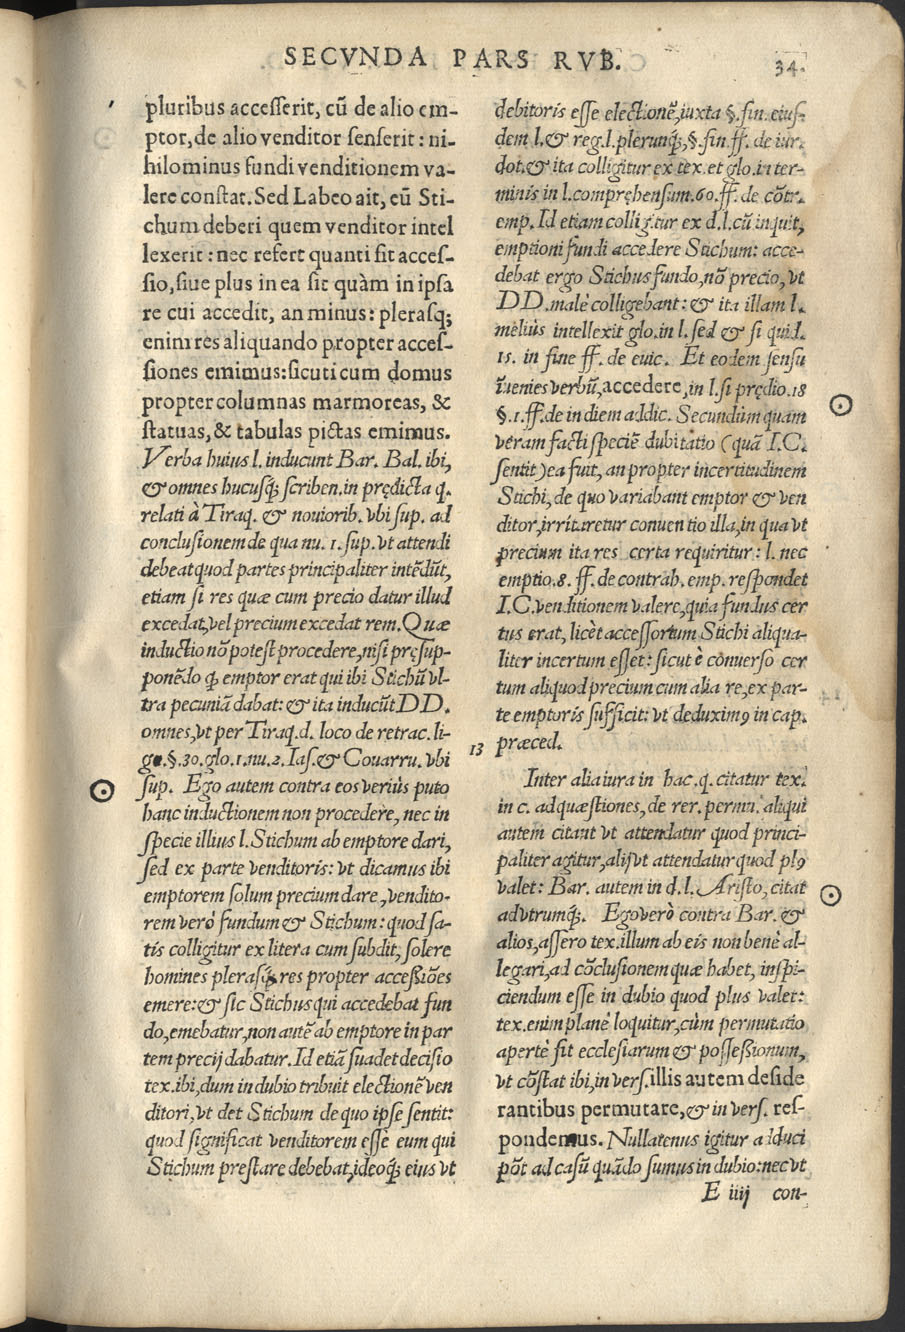 SECVNDA PARS RVB.
34.
pluribus accesserit, cū de alio em-
ptor, de alio venditor senserit: ni-
hilominus fundi venditionem va-
lere constat. Sed Labeo ait, eū Sti-
chum deberi quem venditor intel
lexerit: nec refert quanti sit acces-
sio, siue plus in ea sit quàm in ipsa
re cui accedit, an minus: plerasq;
enim res aliquando propter acces-
siones emimus: sicuti cum domus
propter columnas marmoreas, &
statuas, & tabulas pictas emimus.
Verba huius l. inducunt Bar. Bal. ibi,
& omnes hucusq́; scriben. in prędicta q.
relati à Tiraq. & nouiorib. vbi sup. ad
conclusionem de qua nu. 1. sup. vt attendi
debeat quod partes principaliter intēdūt,
etiam si res quæ cum precio datur illud
excedat, vel precium excedat rem. Quæ
inductio nō potest procedere, nisi pręsup-
ponēdo q́; emptor erat qui ibi Stichū vl-
tra pecuniā dabat: & ita inducūt DD.
omnes, vt per Tiraq. d. loco de retrac. li-
ge. §. 30. glo. 1. nu. 2. Ias. & Couarru. vbi
sup. Ego autem contra eos veriùs puto
hanc inductionem non procedere, nec in
specie illius l. Stichum ab emptore dari,
sed ex parte venditoris: vt dicamus ibi
emptorem solum precium dare, vendito-
rem verò fundum & Stichum: quod sa-
tis colligitur ex litera cum subdit, solere
homines plerasq́; res propter accessiōes
emere: & sic Stichus qui accedebat fun
do, emebatur, non autē ab emptore in par
tem precij dabatur. Id etiā suadet decisio
tex. ibi, dum in dubio tribuit electionē ven
ditori, vt det Stichum de quo ipse sentit:
quod significat venditorem essè eum qui
Stichum prestare debebat, ideoq́; eius vt
debitoris esse electionē, iuxta §. fin. eius-
dem l. & reg. l. plerunq́;, §. fin. ff. de iur.
dot. & ita colligitur ex tex. et glo. in ter-
minis in l. compręhensum. 60. ff. de cōtr.
emp. Id etiam colligitur ex d. l. cū inquit,
emptioni fundi accedere Stichum: acce-
debat ergo Stichus fundo, nō precio, vt
DD. malè colligebant: & ita illam l.
meliùs intellexit glo. in l. sed & si quid.
15. in fine ff. de euic. Et eodem sensu
īuenies verbū, accedere, in l. si prędio. 18
§. 1. ff. de in diem addic. Secundùm quam
veram facti speciē dubitatio (quā I.C.
sentit) ea fuit, an propter incertitudinem
Stichi, de quo variabant emptor & ven
ditor, irritaretur conuentio illa, in qua vt
precium ita res certa requiritur: l. nec
emptio. 8. ff. de contrah. emp. respondet
I.C. venditionem valere, quia fundus cer
tus erat, licèt accessortum Stichi aliqua-
liter incertum esset: sicut è conuerso cer
tum aliquod precium cum alia re, ex par-
te emptoris sufficit: vt deduximꝰ in cap.
13 præced.
Inter alia iura in hac. q. citatur tex.
in c. ad quæstiones, de rer. permu. aliqui
autem citant vt attendatur quod princi-
paliter agitur, alij vt attendatur quod plꝰ
valet: Bar. autem in d. l. Aristo, citat
ad vtrumq́;. Ego verò contra Bar. &
alios, assero tex. illum ab eis non benè al-
legari, ad cōclusionem quæ habet, inspi-
ciendum esse in dubio quod plus valet:
tex. enim planè loquitur, cùm permutatio
apertè fit ecclesiarum & possessionum,
vt cōstat ibi, in vers. illis autem deside
rantibus permutare, & in vers. res-
pondemus. Nullatenus igitur adduci
pōt ad casū quādo sumus in dubio: nec vt
E iiij con-